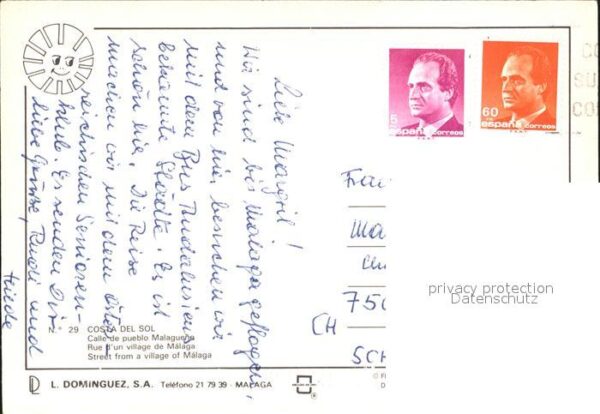 Liebe Margrit!
Wir sind bis Malaga geflogen,
und von hier besuchen wir
mit dem Bus Andalusiens
bekannte Städte. Es ist
schön hier. Die Reise
machen wir mit dem öster-
reichischen Senioren-
klub. Es senden Dir
liebe Grüsse, Rudi und
5
españa correos
60
españa correos
Frau
Ma
750
CH
SCH
privacy protection
Datenschutz
N. 29 COSTA DEL SOL
Calle de pueblo Malagueño
Rue d'un village de Málaga
Street from a village of Málaga
L. DOMINGUEZ, S.A. Teléfono 21 79 39 - MALAGA